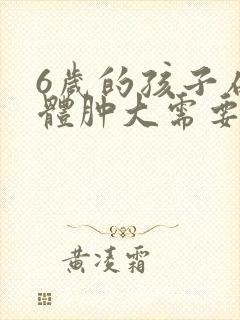 6歲的孩子
體肿大需要
黄凌霜